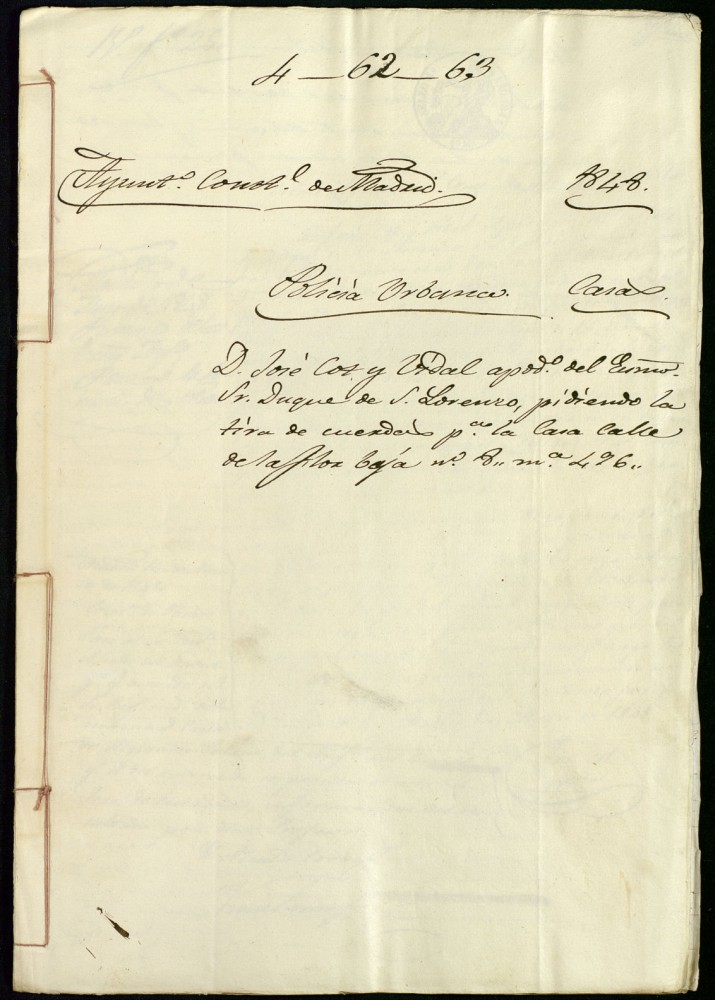 4 — 62 — 63
Ayunt.º Const.l de Madrid. 1848.
Policía Urbana. Casas.
D. José Cot y Vidal apod.º del Exmo.
Sr. Duque de S. Lorenzo, pidiendo la
tira de cuerdas p.ª la Casa Calle
de la flor baja nº 8,, m.ª 496,,